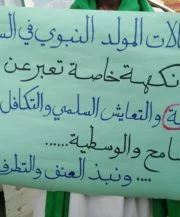 لات المولد النبوي في الس
نكهة خاصة تعبر عن
ة والتعايش السلمي والتكافل
سامح والوسطية......
.... ونبذ العنف والتطرف